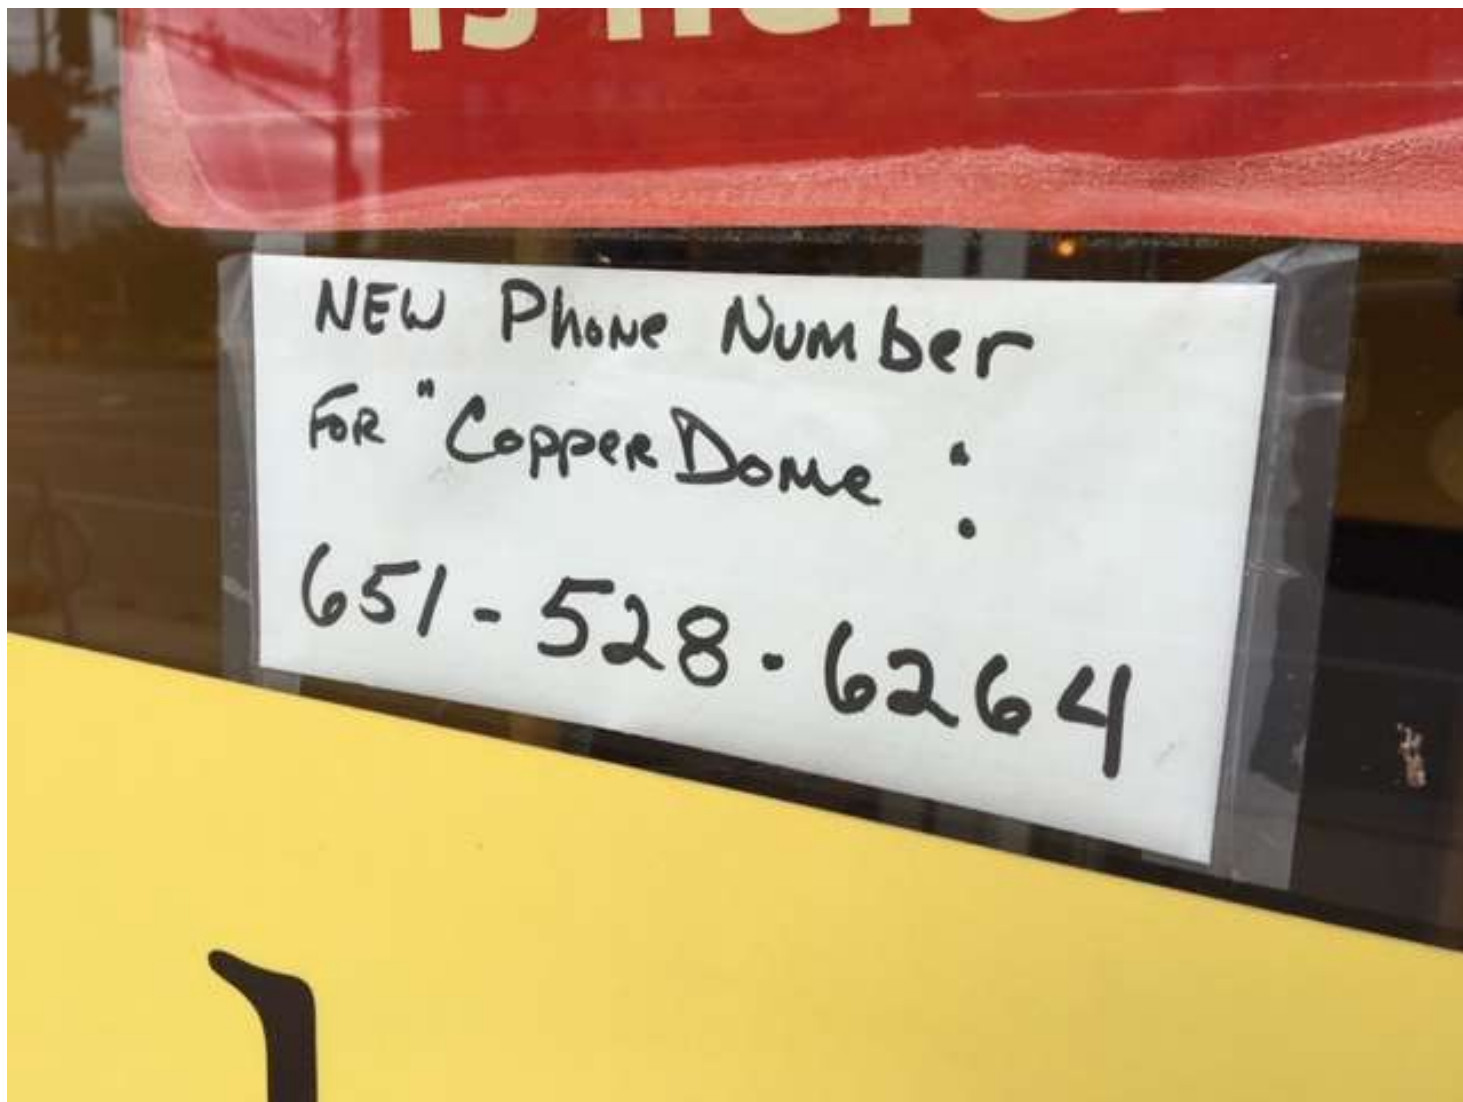 is here!
NEW Phone Number
FOR "Copper Dome :
651-528-6264